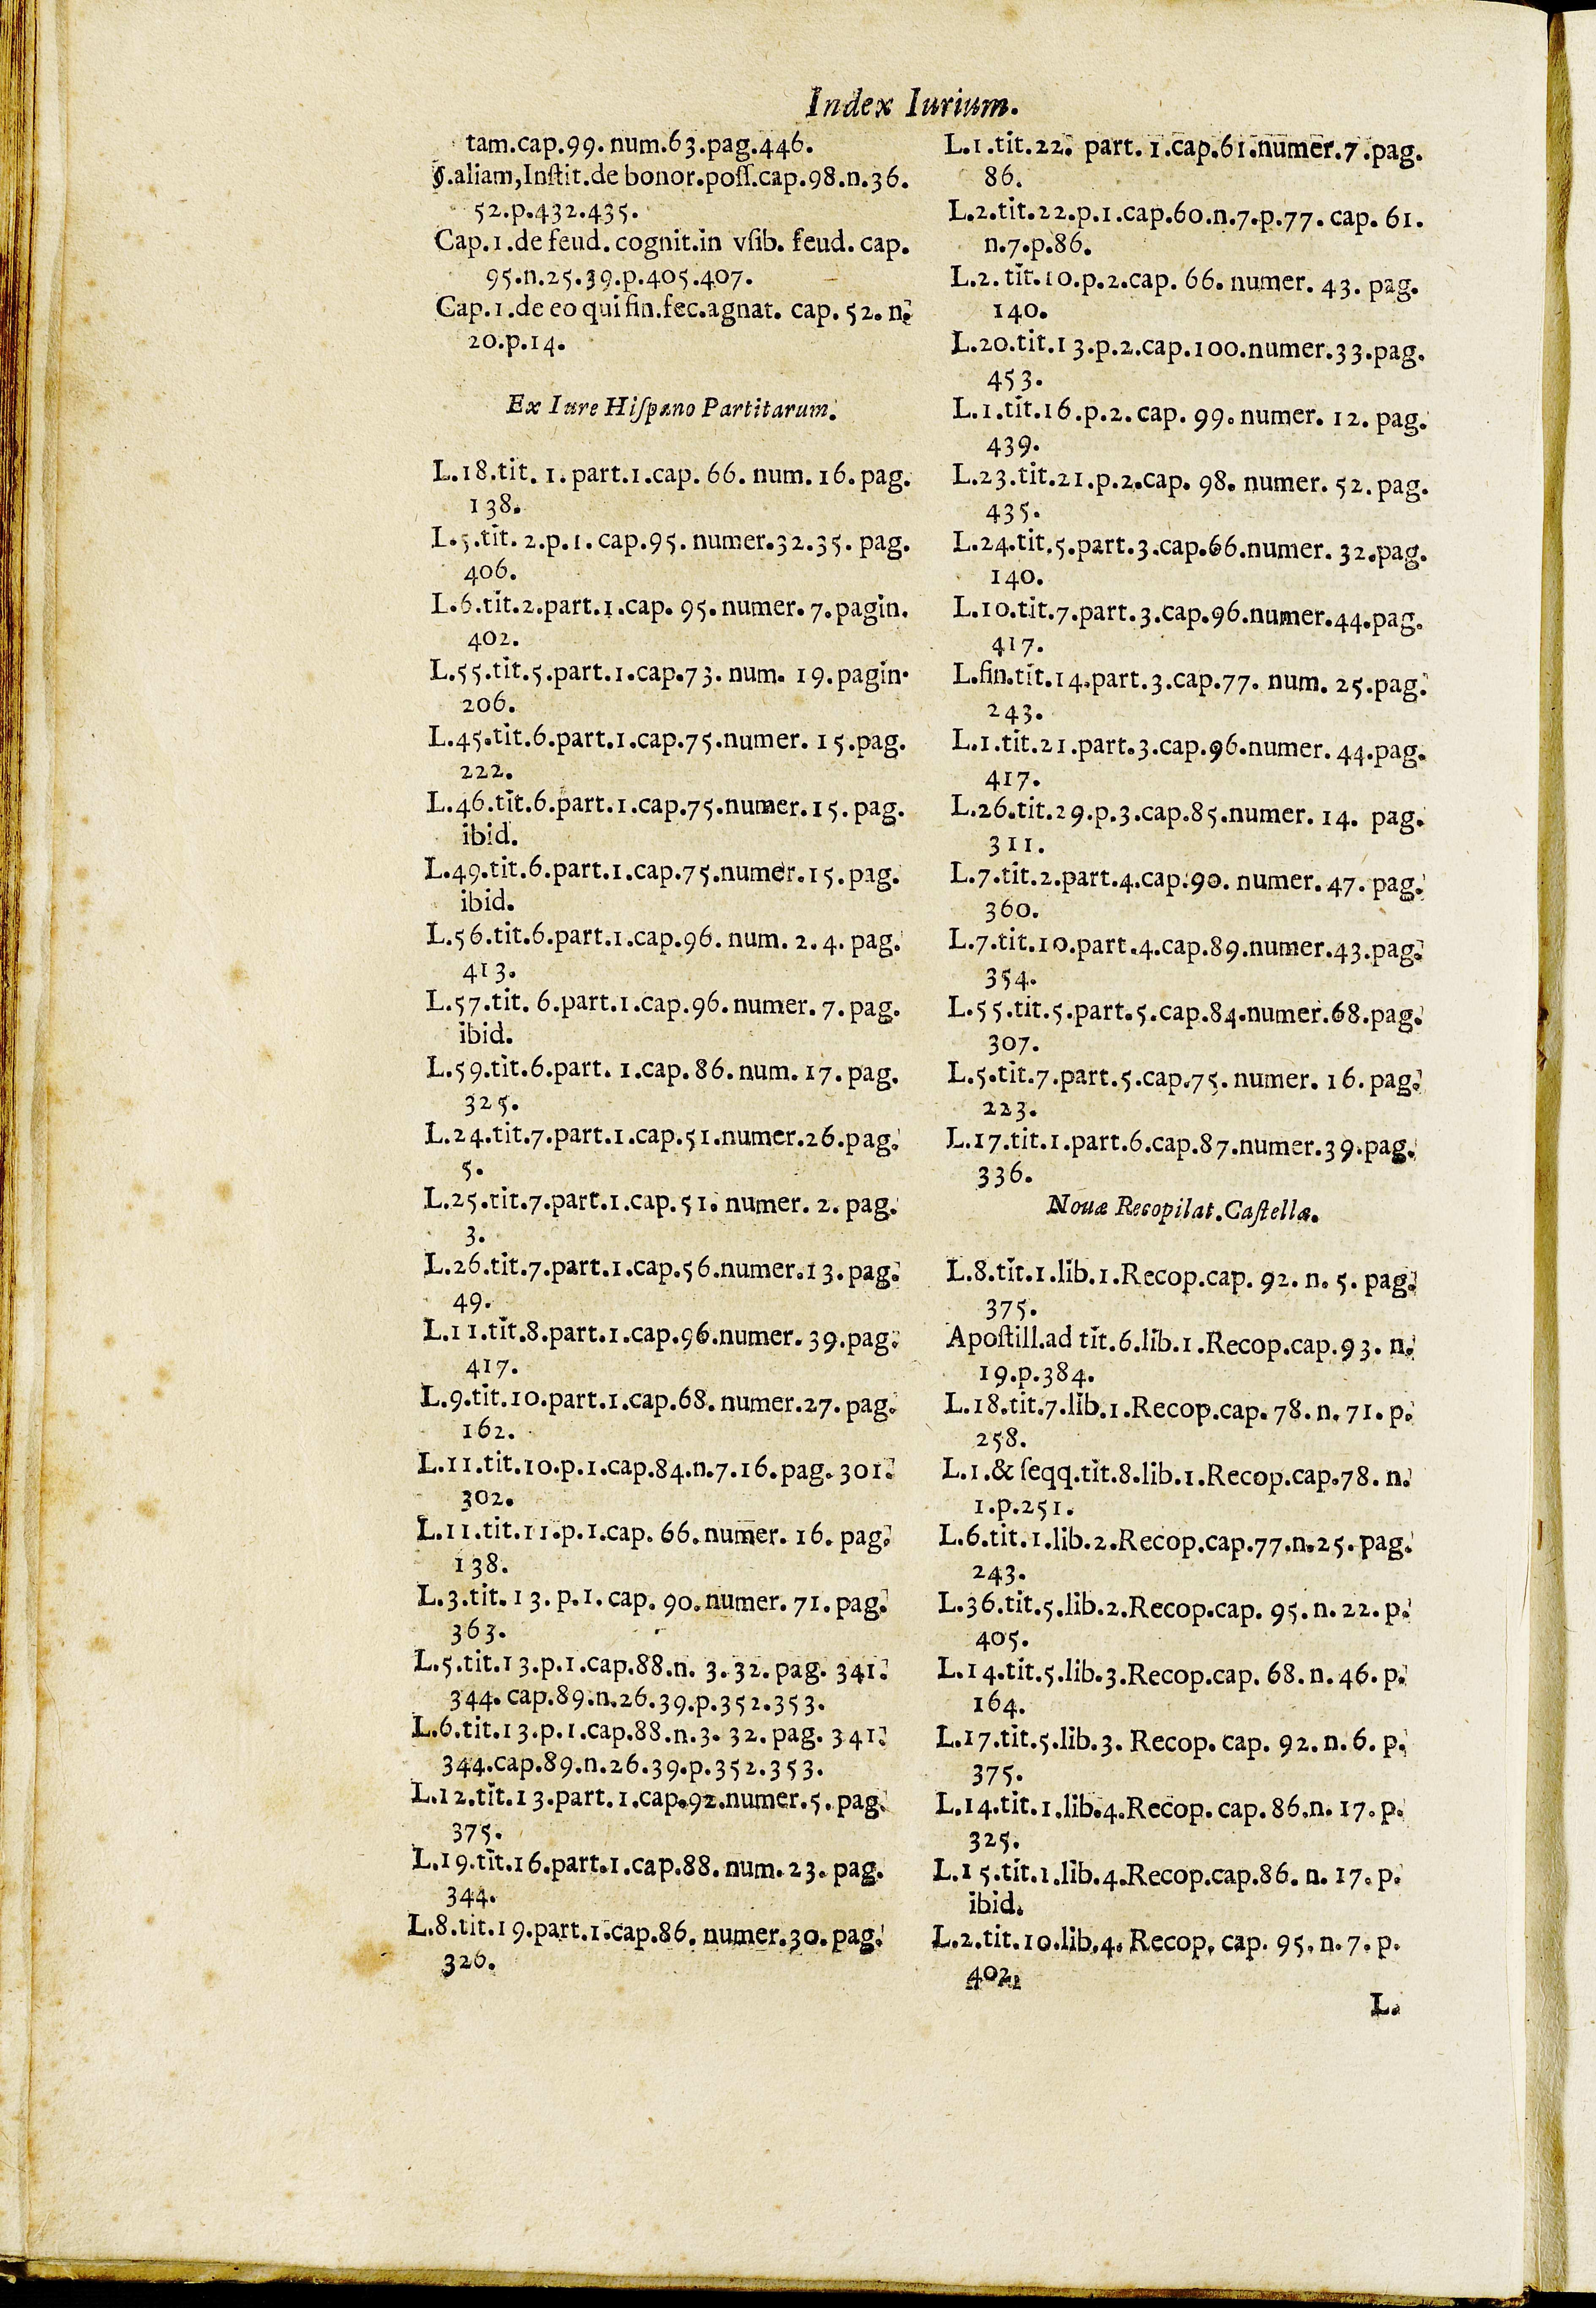 Index Iurium.
tam.cap.99. num.63.pag.446.
§.aliam,Instit.de bonor.poss.cap.98.n.36.
52.p.432.435.
Cap.1.de feud. cognit.in vsib. feud. cap.
95.n.25.39.p.405.407.
Cap.1.de eo qui fin.fec.agnat. cap. 52. n.
20.p.14.
Ex Iure Hispano Partitarum.
L.18.tit. 1. part.1.cap. 66. num. 16. pag.
138.
L.5.tit. 2.p.1. cap.95. numer.32.35. pag.
406.
L.6.tit.2.part.1.cap. 95. numer. 7. pagin.
402.
L.55.tit.5.part.1.cap.73. num. 19. pagin.
206.
L.45.tit.6.part.1.cap.75.numer. 15.pag.
222.
L.46.tit.6.part.1.cap.75.numer.15. pag.
ibid.
L.49.tit.6.part.1.cap.75.numer.15. pag.
ibid.
L.56.tit.6.part.1.cap.96. num. 2. 4. pag.
413.
L.57.tit. 6.part.1.cap.96. numer. 7. pag.
ibid.
L.59.tit.6.part. 1.cap. 86. num. 17. pag.
325.
L.24.tit.7.part.1.cap.51.numer.26.pag.
5.
L.25.tit.7.part.1.cap. 51. numer. 2. pag.
3.
L.26.tit.7.part.1.cap.56.numer.13. pag.
49.
L.11.tit.8.part.1.cap.96.numer. 39.pag.
417.
L.9.tit.10.part.1.cap.68. numer.27. pag.
162.
L.11.tit.10.p.1.cap.84.n.7.16.pag. 301.
302.
L.11.tit.11.p.1.cap. 66. numer. 16. pag.
138.
L.3.tit.13. p.1. cap. 90. numer. 71. pag.
363.
L.5.tit.13.p.1.cap.88.n. 3. 32. pag. 341.
344. cap.89.n.26.39.p.352.353.
L.6.tit.13.p.1.cap.88.n.3. 32. pag. 341.
344.cap.89.n.26.39.p.352.353.
L.12.tit.13.part.1.cap.92.numer.5. pag.
375.
L.19.tit.16.part.1.cap.88. num. 23. pag.
344.
L.8.tit.19.part.1.cap.86. numer.30. pag.
326.
L.1.tit.22. part. 1.cap.61.numer.7.pag.
86.
L.2.tit.22.p.1.cap.60.n.7.p.77. cap. 61.
n.7.p.86.
L.2.tit.10.p.2.cap. 66. numer. 43. pag.
140.
L.20.tit.13.p.2.cap.100.numer.33.pag.
453.
L.1.tit.16.p.2. cap. 99. numer. 12. pag.
439.
L.23.tit.21.p.2.cap. 98. numer. 52. pag.
435.
L.24.tit.5.part.3.cap.66.numer. 32.pag.
140.
L.10.tit.7.part.3.cap.96.numer.44.pag.
417.
L.fin.tit.14.part.3.cap.77. num. 25.pag.
243.
L.1.tit.21.part.3.cap.96.numer. 44.pag.
417.
L.26.tit.29.p.3.cap.85.numer. 14. pag.
311.
L.7.tit.2.part.4.cap.90. numer. 47. pag.
360.
L.7.tit.10.part.4.cap.89.numer.43.pag.
354.
L.55.tit.5.part.5.cap.84.numer.68.pag.
307.
L.5.tit.7.part.5.cap.75. numer. 16. pag.
223.
L.17.tit.1.part.6.cap.87.numer.39.pag.
336.
Nouæ Recopilat. Castellæ.
L.8.tit.1.lib.1.Recop.cap. 92. n. 5. pag.
375.
Apostill.ad tit.6.lib.1.Recop.cap.93. n.
19.p.384.
L.18.tit.7.lib.1.Recop.cap. 78. n. 71. p.
258.
L.1.& seqq.tit.8.lib.1.Recop.cap.78. n.
1.p.251.
L.6.tit.1.lib.2.Recop.cap.77.n.25. pag.
243.
L.36.tit.5.lib.2.Recop.cap. 95. n. 22. p.
405.
L.14.tit.5.lib.3.Recop.cap. 68. n. 46. p.
164.
L.17.tit.5.lib.3. Recop. cap. 92. n. 6. p.
375.
L.14.tit.1.lib.4.Recop. cap. 86.n. 17. p.
325.
L.15.tit.1.lib.4.Recop.cap.86. n. 17. p.
ibid.
L.2.tit.10.lib.4. Recop. cap. 95. n. 7. p.
402.
L.